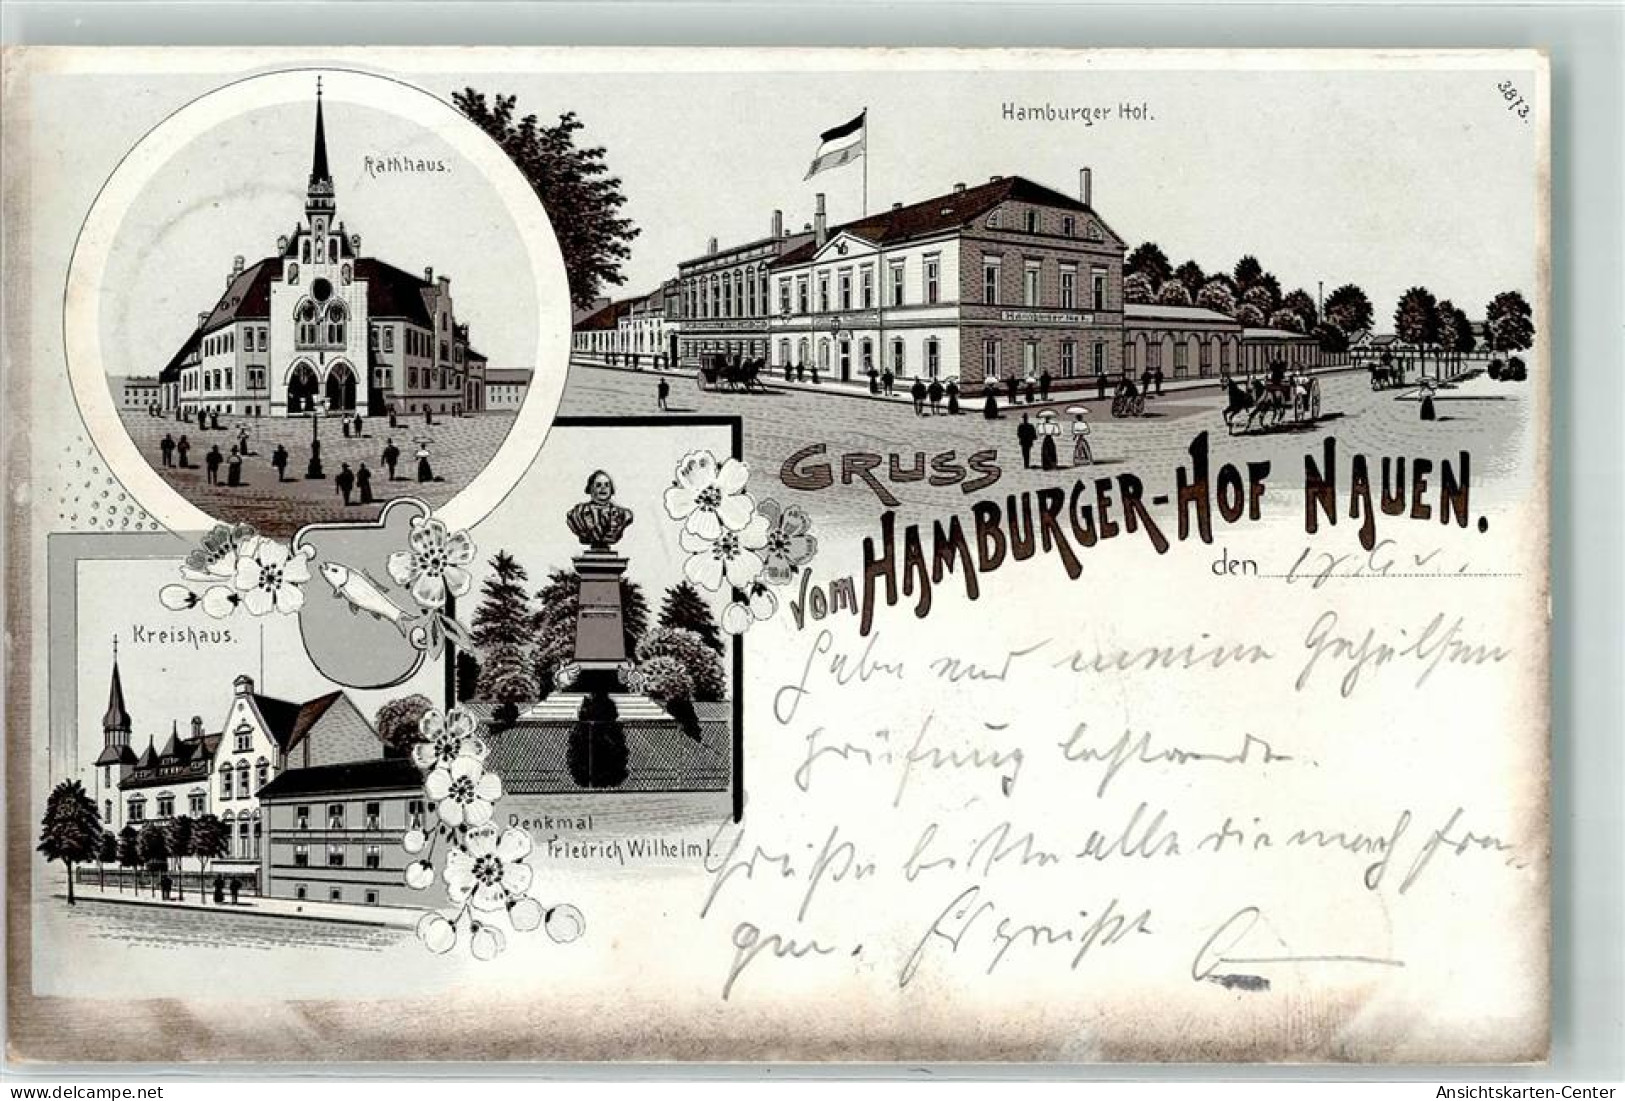 Rathhaus.
Hamburger Hof.
3873.
Hamburger Hof.
GRUSS
vom HAMBURGER-HOF NAUEN.
den
Kreishaus.
Denkmal
Friedrich Wilhelm I.
Habe eine meine Gehülfen
prüfung bestanden.
Grüße bitte alle die nach fra-
gen. Es grüßt
Ansichtskarten-Center